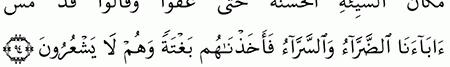 مَكَانَ السَّيِّئَةِ الْحَسَنَةَ حَتَّىٰ عَفَوا وَّقَالُوا قَدْ مَسَّ
ءَابَآءَنَا الضَّرَّآءُ وَالسَّرَّآءُ فَأَخَذْنَـٰهُم بَغْتَةً وَهُمْ لَا يَشْعُرُونَ ﴿٩٤﴾